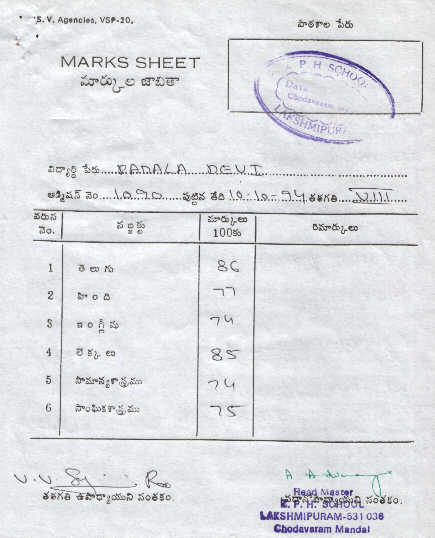 S. V. Agencies, VSP-20,
పాఠశాల పేరు
MARKS SHEET
మార్కుల జాబితా
Z. P. H SCHOOL
Date
Chodavaram
LAKSHMIPURAM
విద్యార్థి పేరు BADALA DEVI
అడ్మిషన్ నెం. 1090 పుట్టిన తేది 10-10-94 తరగతి VIII
వరుస నెం. సబ్జక్టు మార్కులు 100కు రిమార్కులు
1 తెలుగు 86
2 హింది 77
3 ఇంగ్లీషు 74
4 లెక్కలు 85
5 సామాన్యశాస్త్రము 74
6 సాంఘికశాస్త్రము 75
తరగతి ఉపాధ్యాయుని సంతకం.
ప్రధానోపాధ్యాయుని సంతకం.
Head Master
Z. P. H. SCHOOL
LAKSHMIPURAM-531 036
Chodavaram Mandal